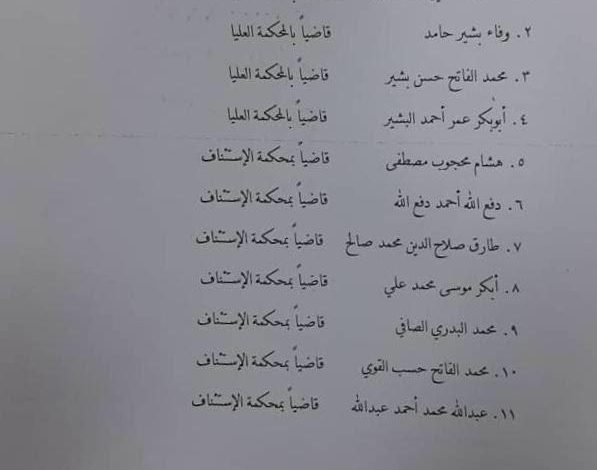 ٢. وفاء بشير حامد قاضياً بالمحكمة العليا
٣. محمد الفاتح حسن بشير قاضياً بالمحكمة العليا
٤. أبوبكر عمر أحمد البشير قاضياً بالمحكمة العليا
٥. هشام محجوب مصطفى قاضياً بمحكمة الإستئناف
٦. دفع الله أحمد دفع الله قاضياً بمحكمة الإستئناف
٧. طارق صلاح الدين محمد صالح قاضياً بمحكمة الإستئناف
٨. أبكر موسى محمد علي قاضياً بمحكمة الإستئناف
٩. محمد البدري الصافي قاضياً بمحكمة الإستئناف
١٠. محمد الفاتح حسب القوي قاضياً بمحكمة الإستئناف
١١. عبدالله محمد أحمد عبدالله قاضياً بمحكمة الإستئناف